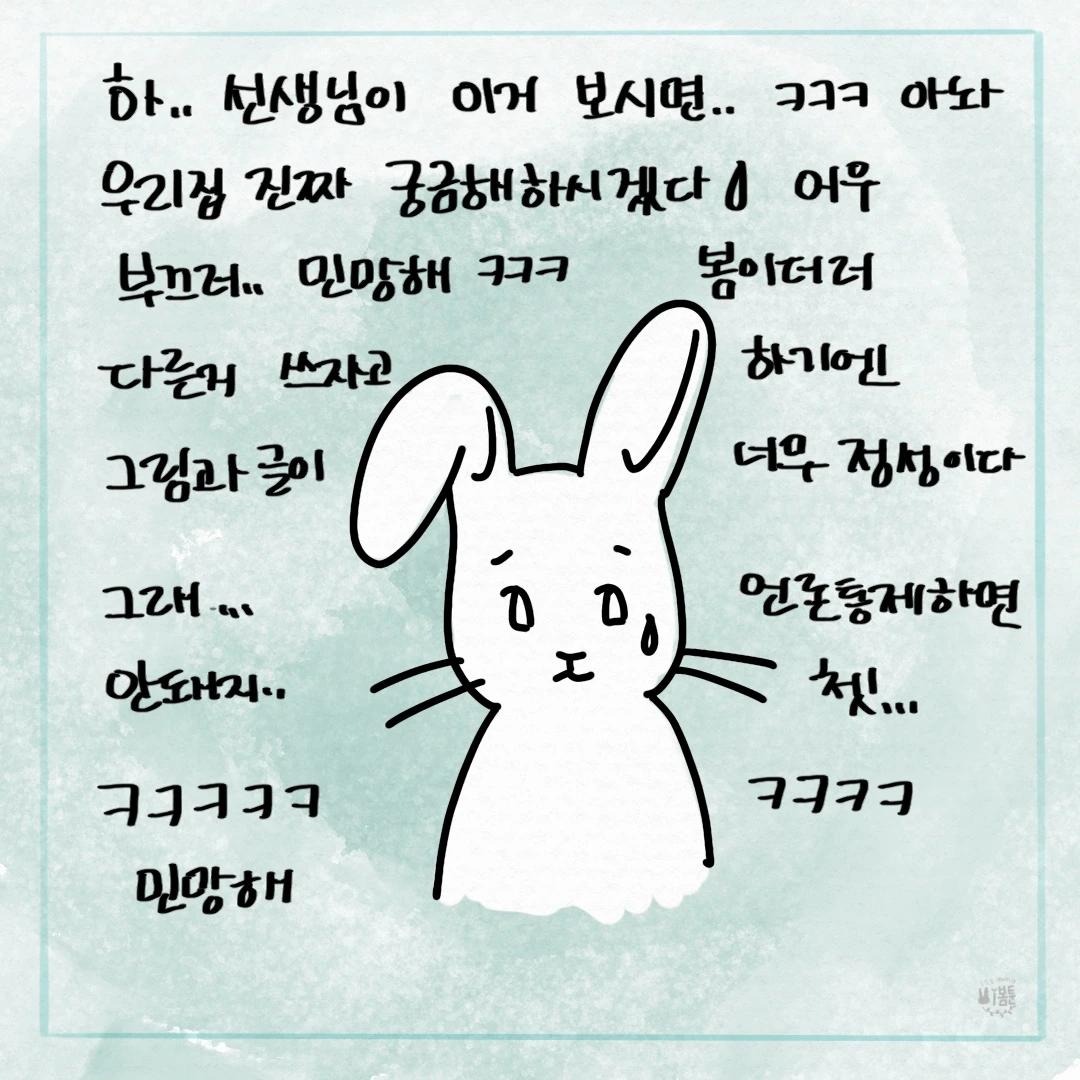 하.. 선생님이 이거 보시면.. ㅋㅋㅋ 아놔
우리집 진짜 궁금해하시겠다 어우
부끄러.. 민망해 ㅋㅋㅋ 봄이더러
다른거 쓰자고 하기엔
그림과 글이 너무 정성이다
그래... 언론통제하면
안돼지.. 쳇...
ㅋㅋㅋㅋㅋ ㅋㅋㅋㅋ
민망해